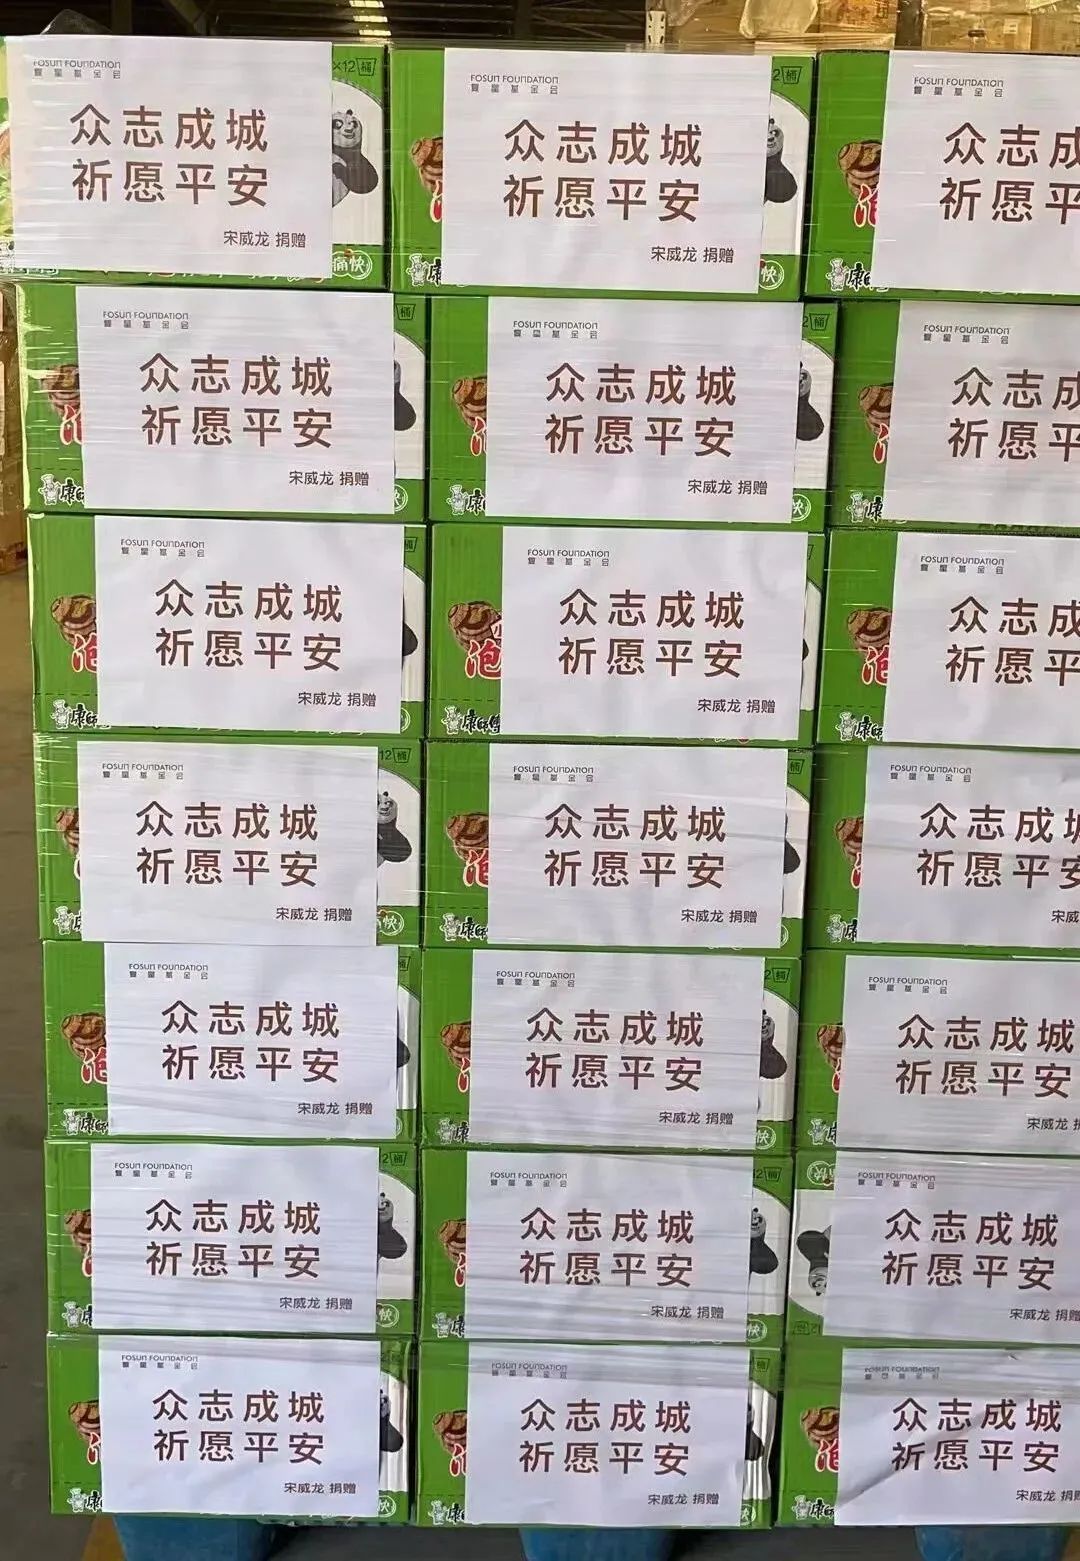 FOSUN FOUNDATION
复星基金会
众志成城
祈愿平安
宋威龙 捐赠
×12桶
痛快
FOSUN FOUNDATION
复星基金会
众志成城
祈愿平安
宋威龙 捐赠
2桶
快
康
FOSUN FOUNDATION
复星基金会
众志成
祈愿平
泡
康师
FOSUN FOUNDATION
复星基金会
众志成城
祈愿平安
宋威龙 捐赠
桶
泡
康师
快
FOSUN FOUNDATION
复星基金会
众志成城
祈愿平安
宋威龙 捐赠
2桶
康
快
FOSUN FOUNDATION
复星基金会
众志成
祈愿平
康
FOSUN FOUNDATION
复星基金会
众志成城
祈愿平安
宋威龙 捐赠
桶
泡
康师
FOSUN FOUNDATION
复星基金会
众志成城
祈愿平安
宋威龙 捐赠
泡
康师傅
FOSUN FOUNDATION
复星基金会
众志成
祈愿平
泡
康师
FOSUN FOUNDATION
复星基金会
众志成城
祈愿平安
宋威龙 捐赠
12桶
快
FOSUN FOUNDATION
复星基金会
众志成城
祈愿平安
宋威龙 捐赠
桶
泡
康师
FOSUN FOUNDATION
复星基金会
众志成城
祈愿平安
宋威
康
FOSUN FOUNDATION
复星基金会
众志成城
祈愿平安
宋威龙 捐赠
桶
泡
康师
FOSUN FOUNDATION
复星基金会
众志成城
祈愿平安
宋威龙 捐赠
2桶
康
快
FOSUN FOUNDATION
复星基金会
众志成城
祈愿平安
宋威龙 捐
康
FOSUN FOUNDATION
复星基金会
众志成城
祈愿平安
宋威龙 捐赠
2桶
康
快
FOSUN FOUNDATION
复星基金会
众志成城
祈愿平安
宋威龙 捐赠
2桶
康
快
FOSUN FOUNDATION
复星基金会
众志成城
祈愿平安
宋威龙 捐赠
痛快
FOSUN FOUNDATION
复星基金会
众志成城
祈愿平安
宋威龙 捐赠
泡
康师
FOSUN FOUNDATION
复星基金会
众志成城
祈愿平安
宋威龙 捐赠
桶
康
FOSUN FOUNDATION
复星基金会
众志成城
祈愿平安
宋威龙 捐
泡
康